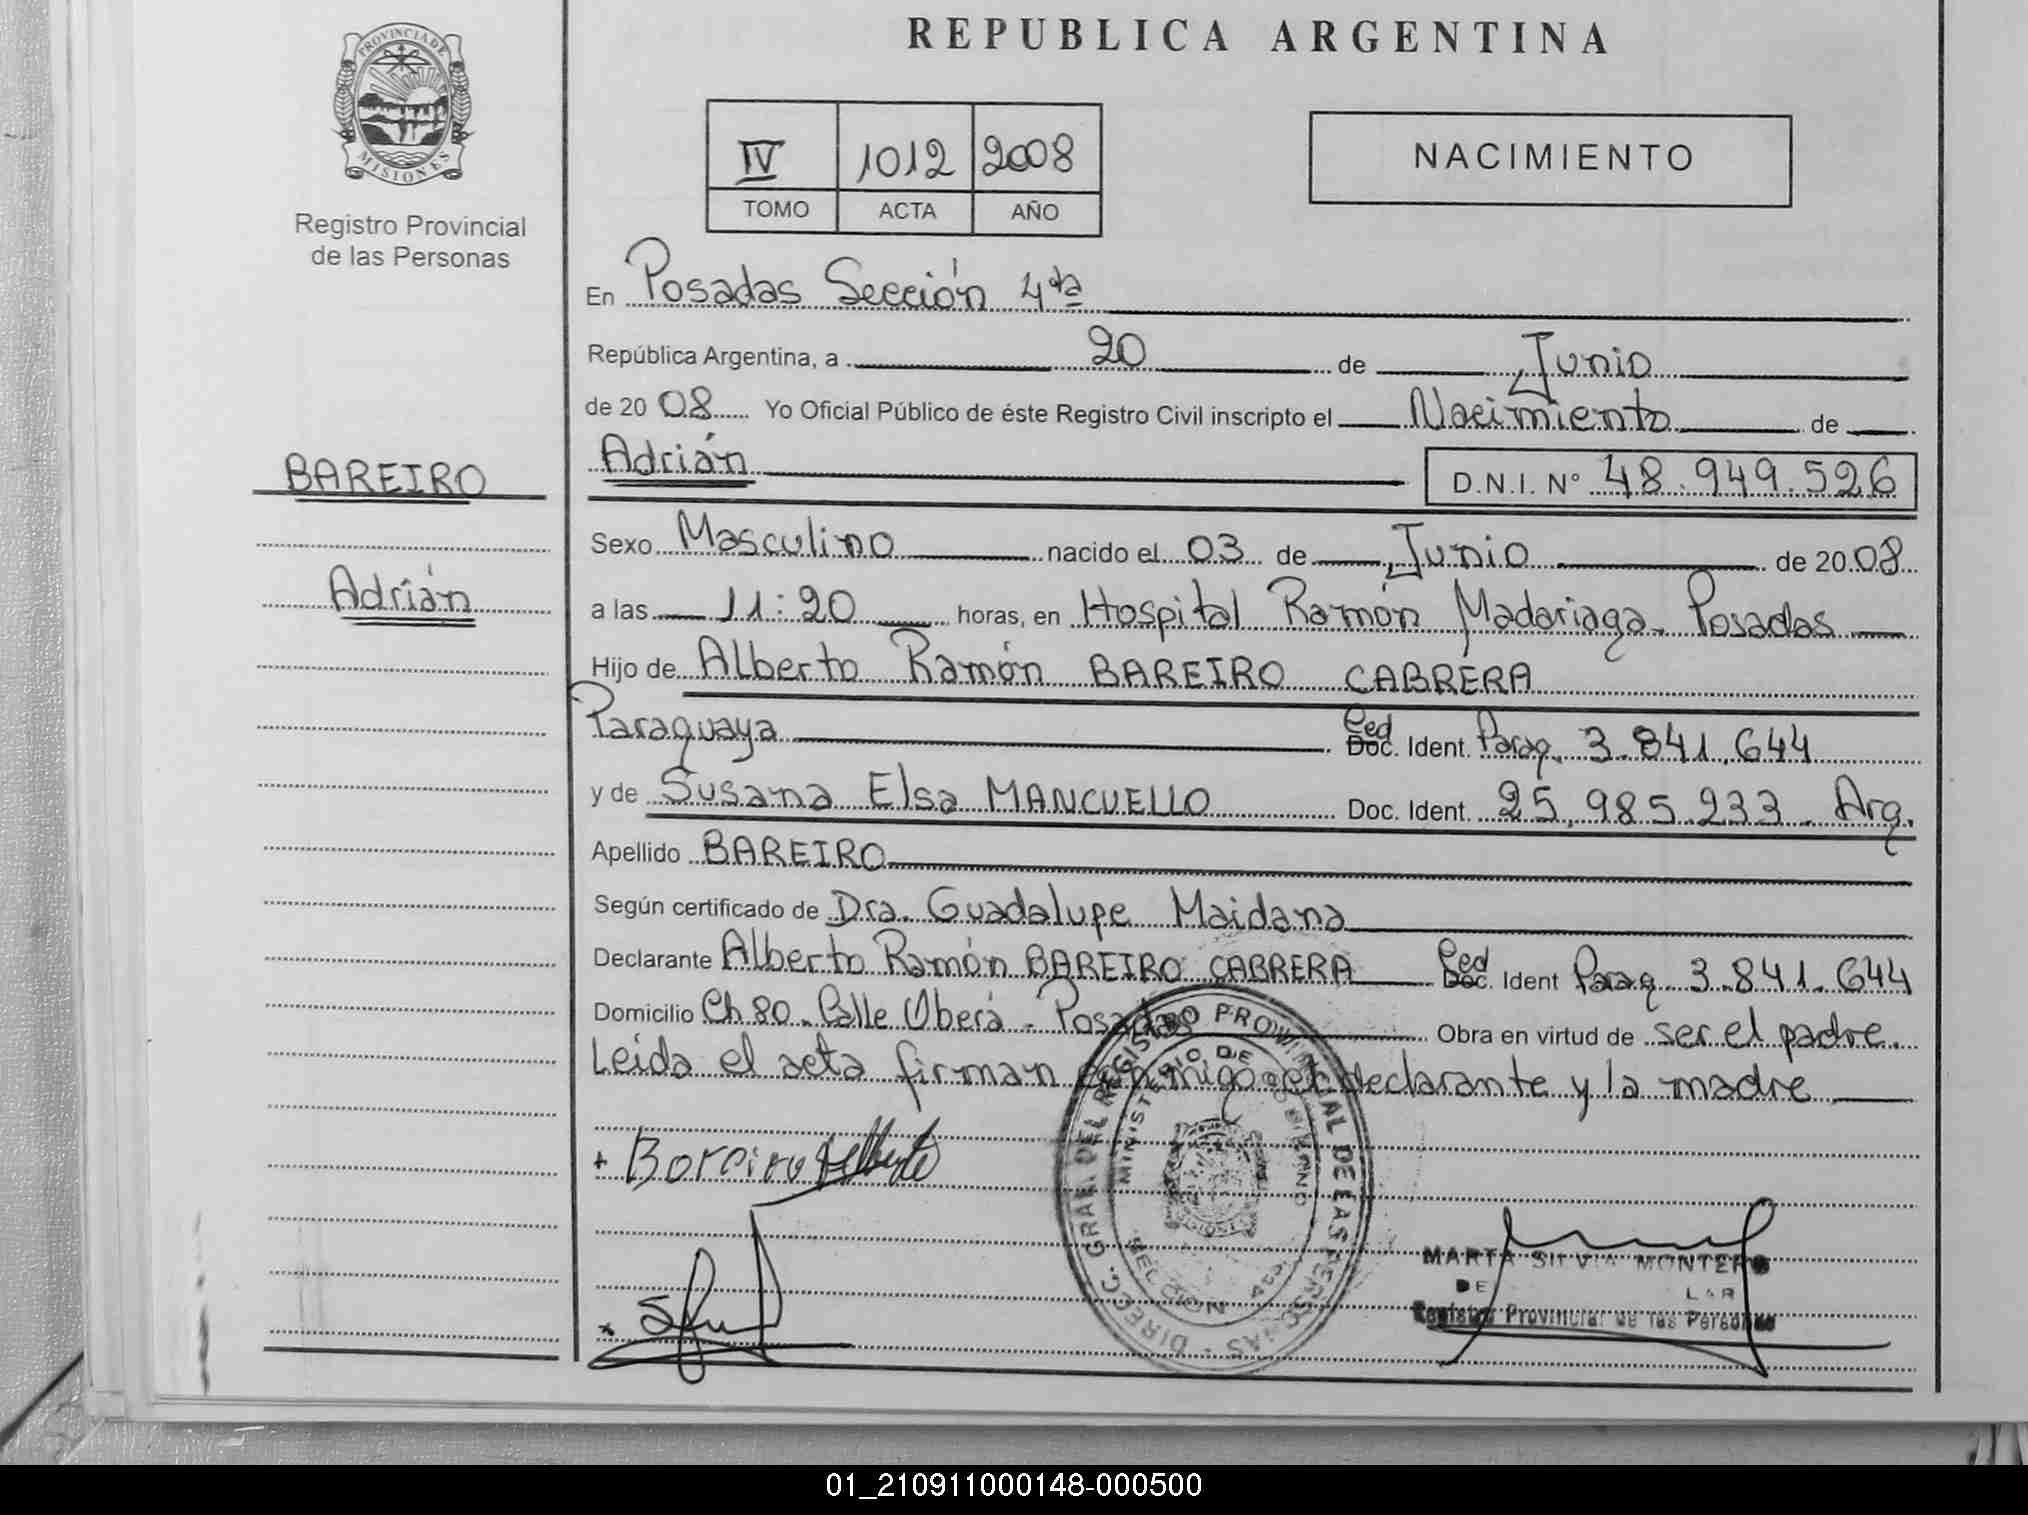 PROVINCIA DE
MISIONES
Registro Provincial
de las Personas
BAREIRO
Adrián
REPUBLICA ARGENTINA
IV 1012 2008
TOMO ACTA AÑO
NACIMIENTO
En Posadas Sección 4ta
República Argentina, a 20 de Junio
de 20 08 Yo Oficial Público de éste Registro Civil inscripto el Nacimiento de
Adrián D.N.I. N° 48.949.526
Sexo Masculino nacido el 03 de Junio de 20 08
a las 11:20 horas, en Hospital Ramón Madariaga. Posadas
Hijo de Alberto Ramón BAREIRO CABRERA
Paraguaya Ced Doc. Ident. Parag. 3.841.644
y de Susana Elsa MANCUELLO Doc. Ident. 25.985.233. Arg.
Apellido BAREIRO
Según certificado de Dra. Guadalupe Maidana
Declarante Alberto Ramón BAREIRO CABRERA Ced Doc. Ident Parag 3.841.644
Domicilio Ch 80. Calle Oberá - Posadas Obra en virtud de ser el padre.
Leida el acta firman conmigo el declarante y la madre
Bareiro Alberto
DIREC. GRAL. DEL REGISTRO PROVINCIAL DE LAS PERSONAS
MINISTERIO DE GOBIERNO
MARTA SILVIA MONTERO
Registro Provincial de las Personas
01_210911000148-000500